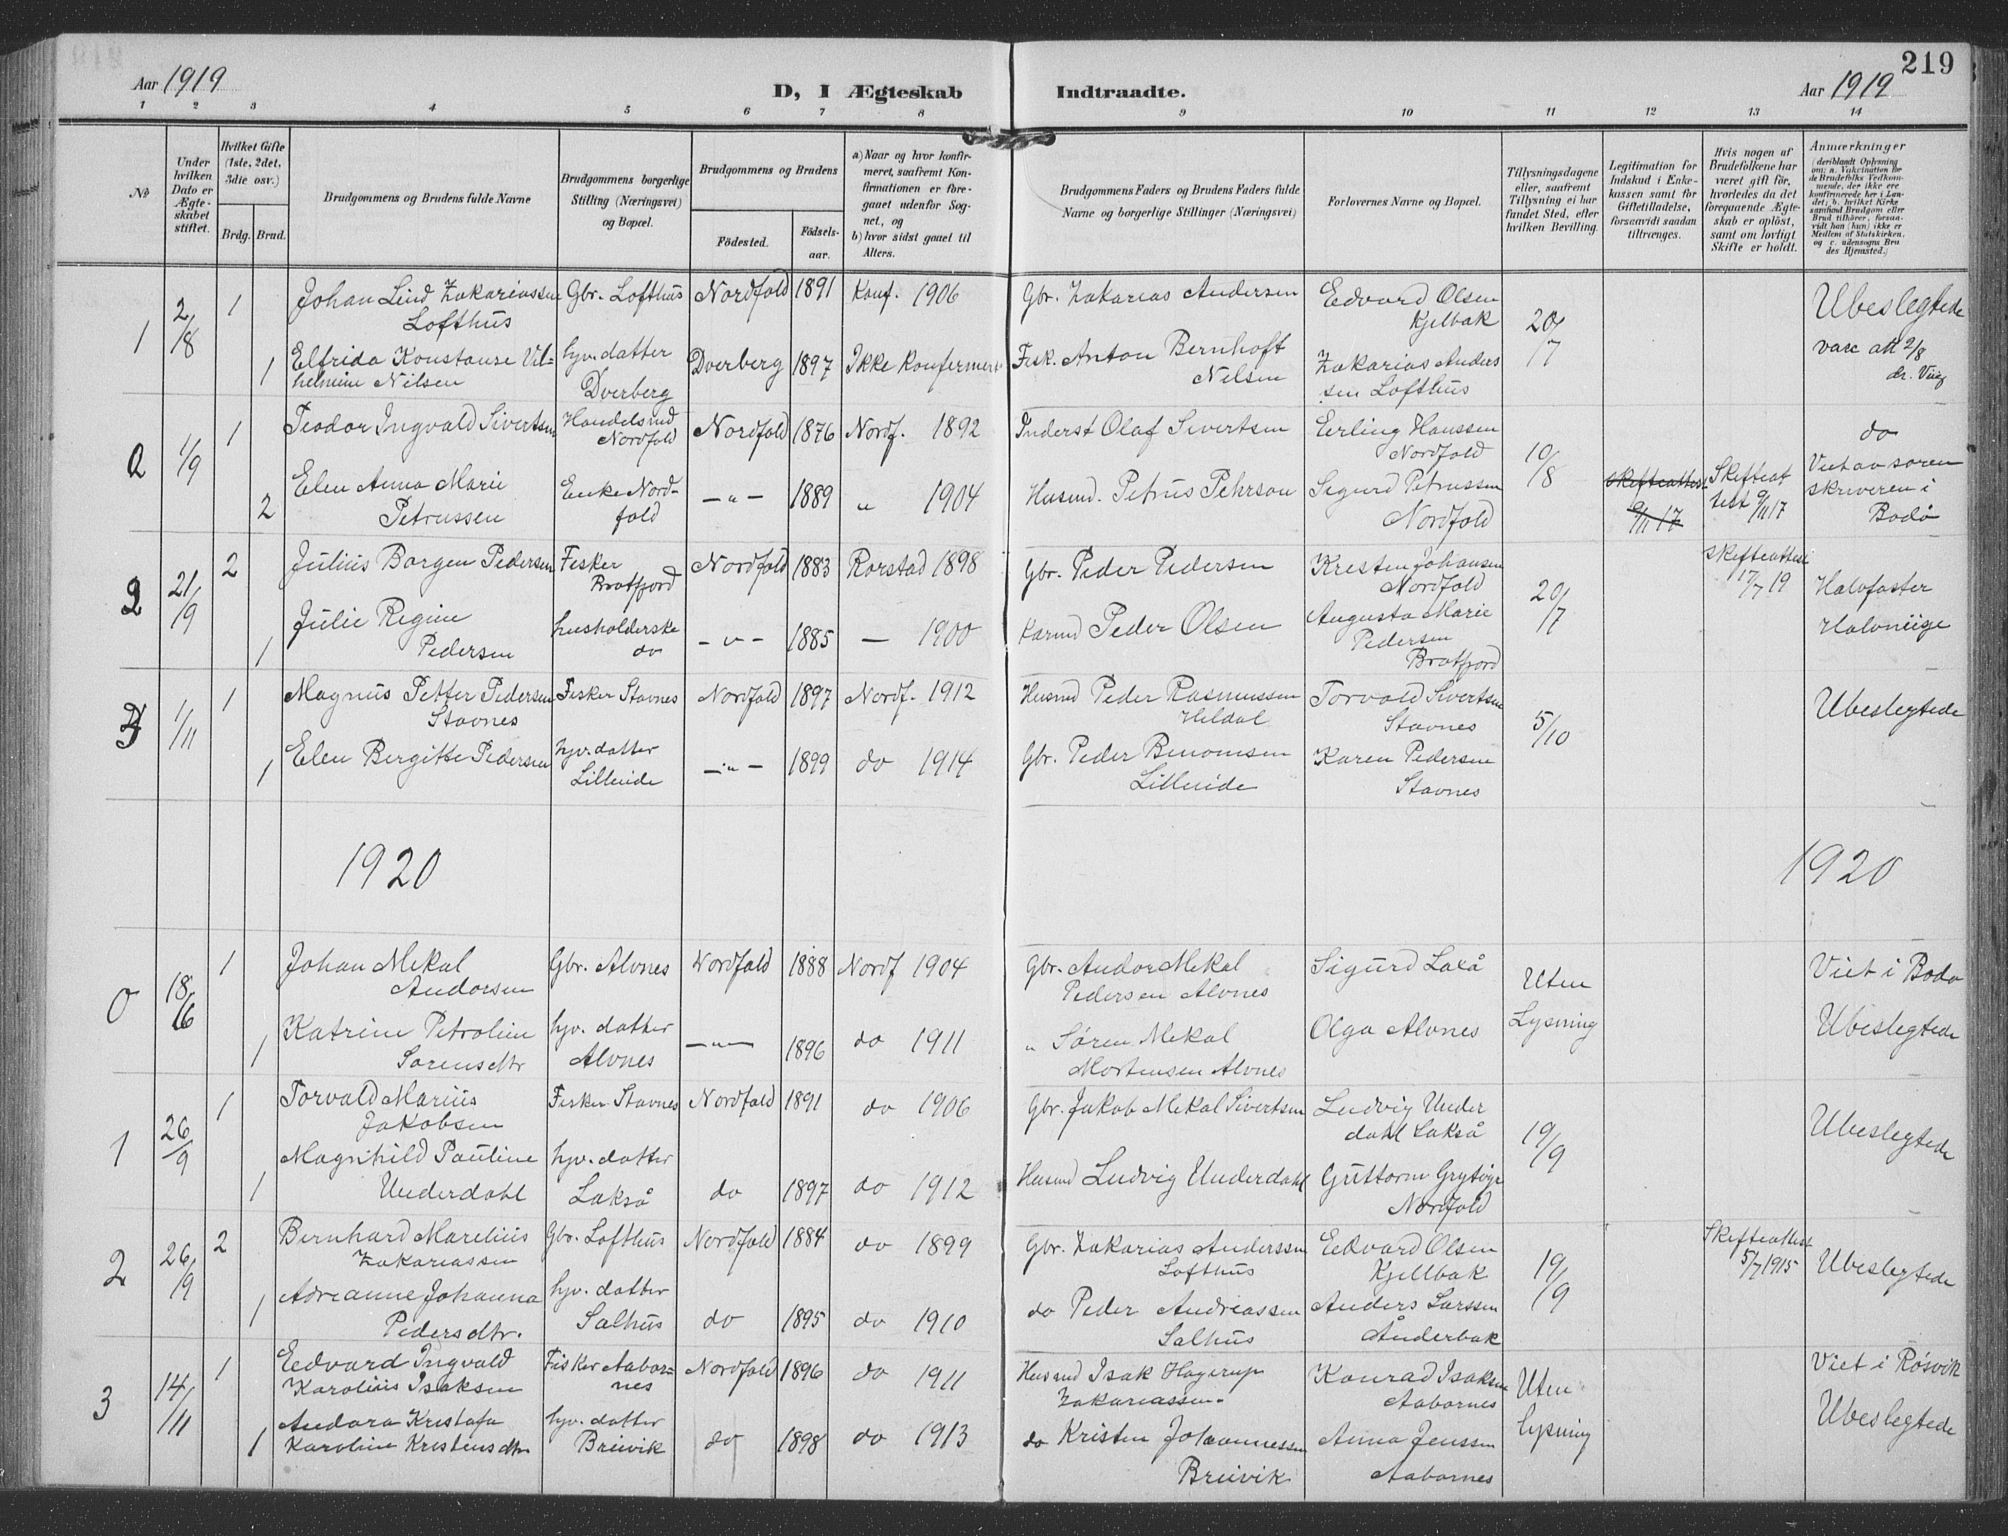 219
Aar 1919
D, I Ægteskab Indtraadte.
Aar 1919
1 2 3 4 5 6 7 8 9 10 11 12 13 14
No
Under hvilken Dato er Ægteskabet stiftet.
Hvilket Gifte (1ste, 2det, 3die osv.)
Brdg. Brud.
Brudgommens og Brudens fulde Navne
Brudgommens borgerlige Stilling (Næringsvei) og Bopæl.
Brudgommens og Brudens
Fødested.
Fødselsaar.
a) Naar og hvor konfirmeret, saafremt Konfirmationen er foregaaet udenfor Sognet, og
b) hvor sidst gaaet til Alters.
Brudgommens Faders og Brudens Faders fulde Navne og borgerlige Stillinger (Næringsvei)
Forlovernes Navne og Bopæl.
Tillysningsdagene eller, saafremt Tillysning ei har fundet Sted, efter hvilken Bevilling.
Legitimation for Indskud i Enkekassen samt for Giftetilladelse, forsaavidt saadan tiltrænges.
Hvis nogen af Brudefolkene har været gift før, hvorledes da det foregaaende Ægteskab er opløst, samt om lovligt Skifte er holdt.
Anmærkninger
(deriblandt Oplysning om: a. Vaccination for de Brudefolks Vedkommende, der ikke ere konfirmerede her i Landet; b. hvilket Kirkesamfund Brudgom eller Brud tilhører, forsaavidt han (hun) ikke er Medlem af Statskirken, og c. udensogns Brudes Hjemsted.)
1 2/8 1 Johan Lind Zakariassen Gbr. Lofthus Nordfold 1891 Konf. 1906 Gbr. Zakarias Andersen Eedvard Olsen 20/7 Ubeslegtede
Lofthus Kjelbak
1 Elfrida Konstanse Vil- hyv. datter Dverberg 1897 Ikke konfermert Fisk. Anton Bernhoft Zakarias Anders vacc. att 2/8
helmine Nilsen Dverberg Nilsen sen Lofthus
2 1/9 1 Teodor Ingvald Sivertsen Handelsmd Nordfold 1876 Nordf. 1892 Inderst Olaf Sivertsen Eerling Hanssen 10/8 do
Nordfold Nordfold
2 Elen Anna Marie Enke Nord- -"- 1889 " 1904 Husmd. Petrus Pehrson Sigurd Petrussen Skifteattest Skifteat Viet av soren
Petrussen fold Nordfold 9/11 17 test 9/11 17 skriveren i
Bodø
2 21/9 2 Julius Borgen Pedersen Fesker Nordfold 1883 Rorstad 1898 Gbr. Peder Pedersen Kresten Johansen 20/7 Skifteattest
Brotfjord Nordfold 17/7 19 Halvfaster
1 Julie Regine husholderske -"- 1885 - 1900 Peder Olsen Augusta Marie Halvneige
Pedersen do Pedersen
Brotfjord
3 1/11 1 Magnus Petter Pedersen Fesker Stavnes Nordfold 1897 Nordf. 1912 Husmd Peder Rasmussen Torvald Sivertsen 5/10 Ubeslegtede
Stavnes Heldal Stavnes
1 Elen Bergitte Pedersen hyv. datter -"- 1899 do 1914 Gbr. Peder Benomsen Karen Pedersen
Lilleeide Lilleeide Stavnes
1920 1920
0 18/6 1 Johan Mekal Gbr. Alvnes Nordfold 1888 Nordf 1904 Gbr. Andor Mekal Sigurd Laxå Uten Viet i Bodø
Andorsen Pedersen Alvnes
1 Katrine Petroline hyv. datter -"- 1896 do 1911 " Søren Mekal Olga Alvnes Lysning Ubeslegtede
Sorensdtr Alvnes Mortensen Alvnes
1 26/9 1 Torvald Marius Fisker Stavnes Nordfold 1891 do 1906 Gbr. Jakob Mekal Sivertsen Ludvig Under 19/9 Ubeslegtede
Jakobsen dahl Lakså
1 Magnhild Pauline hyv. datter
Underdahl Lakså do 1897 do 1912 Husmd Ludvig Underdahl Guttorm Grytøyr
Nordfold
2 26/9 2 Bernhard Marelius Gbr. Lofthus Nordfold 1884 do 1899 Gbr. Zakarias Anderssen Eedvard Olsen 19/9 Skifteattest Ubeslegtede
Zakariassen Lofthus Kjellbak 5/7 1915
1 Adreanne Johanna hyv. datter do 1895 do 1910 do Peder Andreassen Anders Larssen
Pedersdtr. Salhus Salhus Ånderbak
3 14/11 1 Eedvard Ingvald Fisker Aabor- Nordfold 1896 do 1911 Husmd Isak Hagerup Konrad Isaksen Uten Viet i Røsvik
Karolius Isaksen nes Zakariassen. Aabornes
1 Andora Kristofa hyv. datter do 1898 do 1913 do Kristen Johannessen Anna Jenssen lysning Ubeslegtede
Karoline Kristensdtr Breivik Breivik Aabornes